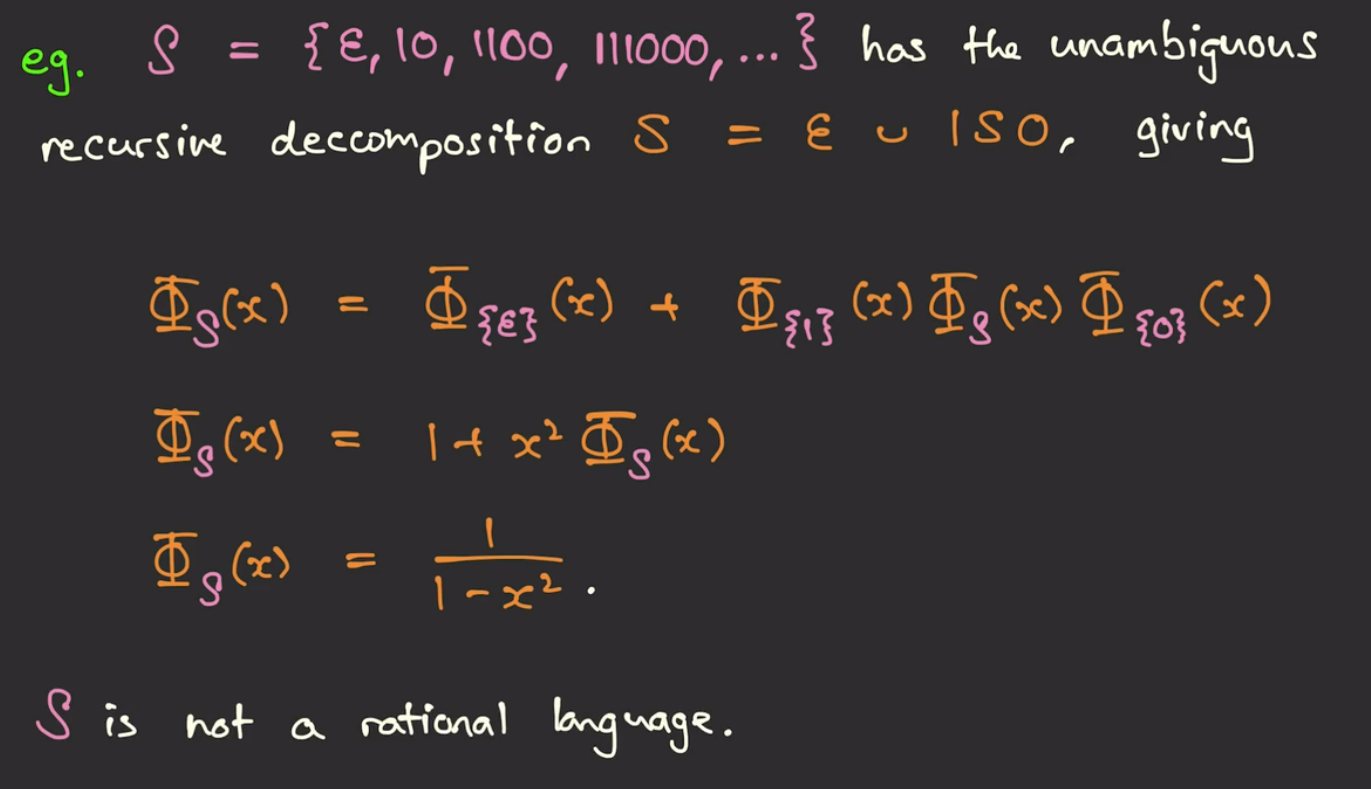 eg. S = {ε, 10, 1100, 111000, ...} has the unambiguous
recursive deccomposition S = ε ∪ 1S0, giving
Φ_S(x) = Φ_{ε}(x) + Φ_{1}(x) Φ_S(x) Φ_{0}(x)
Φ_S(x) = 1 + x² Φ_S(x)
Φ_S(x) = 1/(1 - x²).
S is not a rational language.